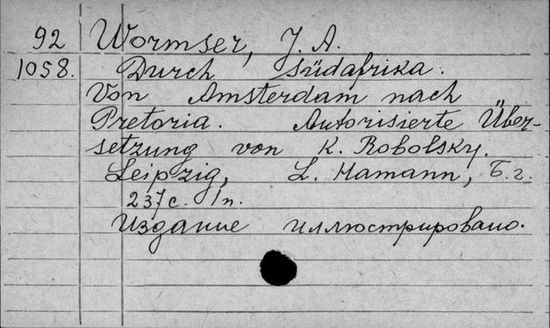 92 Wormser, J. A.
1058. Durch Südafrika.
Von Amsterdam nach
Pretoria. Autorisierte Über-
setzung von K. Robolsky.
Leipzig, L. Hamann, Б. г.
237 с. 1 п.
Издание иллюстрировано.